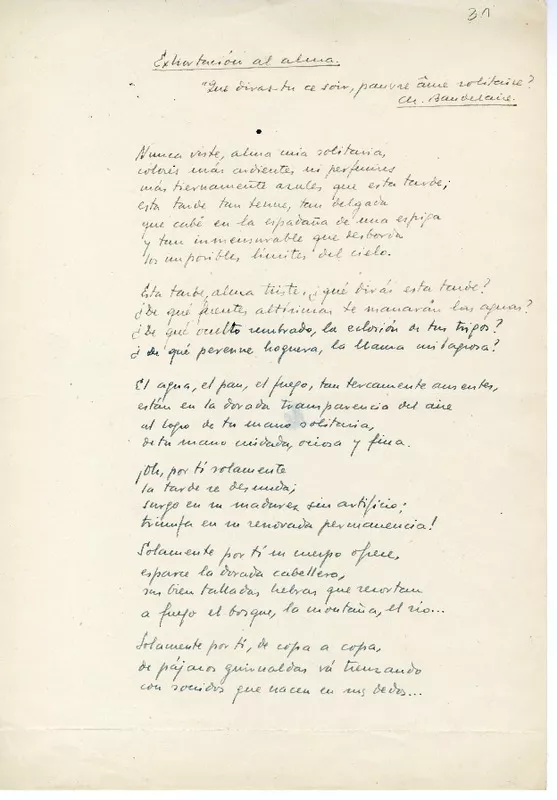 31
Exhortación al alma.
"Que diras-tu ce soir, pauvre âme solitaire?
Ch. Baudelaire.
Nunca viste, alma mia solitaria,
colores más ardientes ni perfumes
más tiernamente azules que esta tarde;
esta tarde tan tenue, tan delgada
que cabe en la espadaña de una espiga
y tan inmensurable que desborda
los imposibles límites del cielo.
Esta tarde, alma triste, ¿qué dirás esta tarde?
¿De qué fuentes altísimas te manarán las aguas?
¿De qué oculto sembrado, la eclosión de tus trigos?
¿de qué perenne hoguera, la llama milagrosa?
El agua, el pan, el fuego, tan tercamente ausentes,
están en la dorada transparencia del aire
al logro de tu mano solitaria,
de tu mano cuidada, ociosa y fina.
¡Oh, por tí solamente
la tarde se desnuda;
surge en su madurez sin artificio;
triunfa en su renovada permanencia!
Solamente por tí su cuerpo ofrece,
esparce la dorada cabellera,
sus bien talladas hebras que recortan
a fuego el bosque, la montaña, el río...
Solamente por tí, de copa a copa,
de pájaros guirnaldas vá trenzando
con sonidos que nacen en sus dedos...